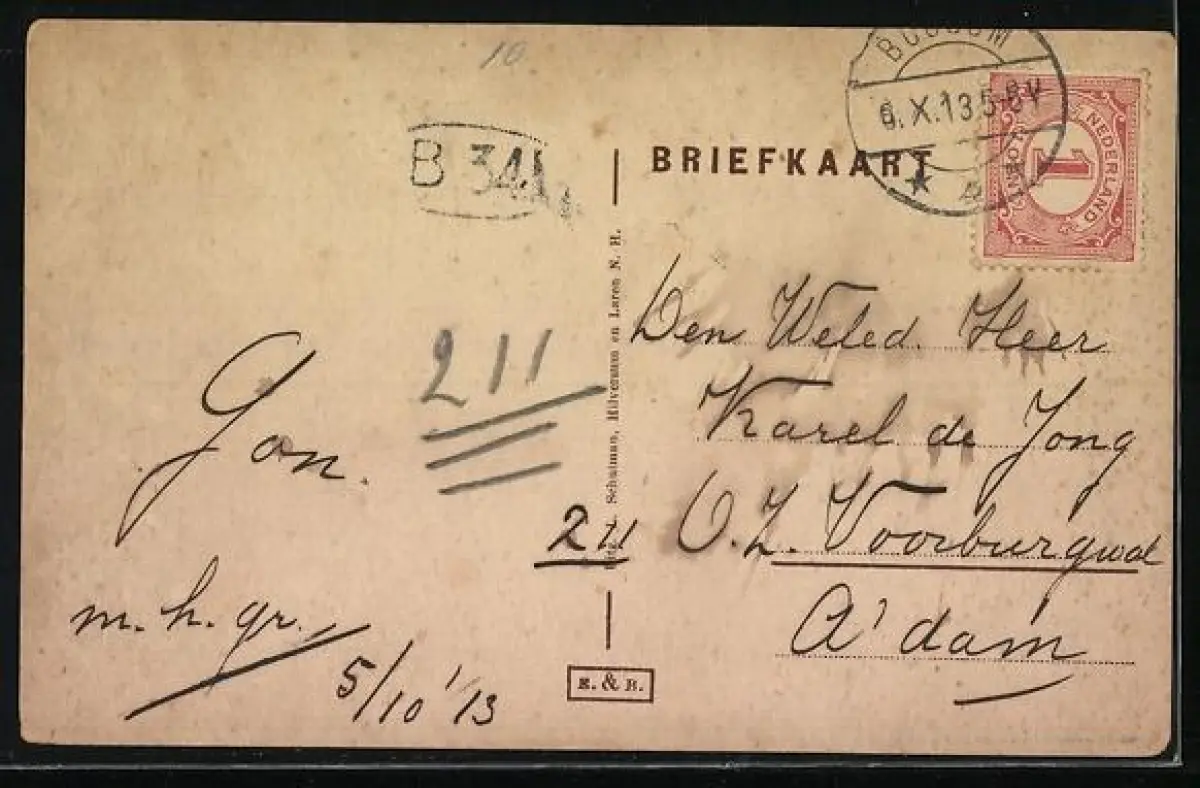 10
BUSSUM
6.X.13.5-6V
4
1 CENT
NEDERLAND
1
B 34
BRIEFKAART
Schulman, Hilversum en Laren N. H.
Den Weled. Heer
Karel de Jong
211 O. Z. Voorburgwal
A'dam
211
Jon.
m. h. gr.,
5/10 '13